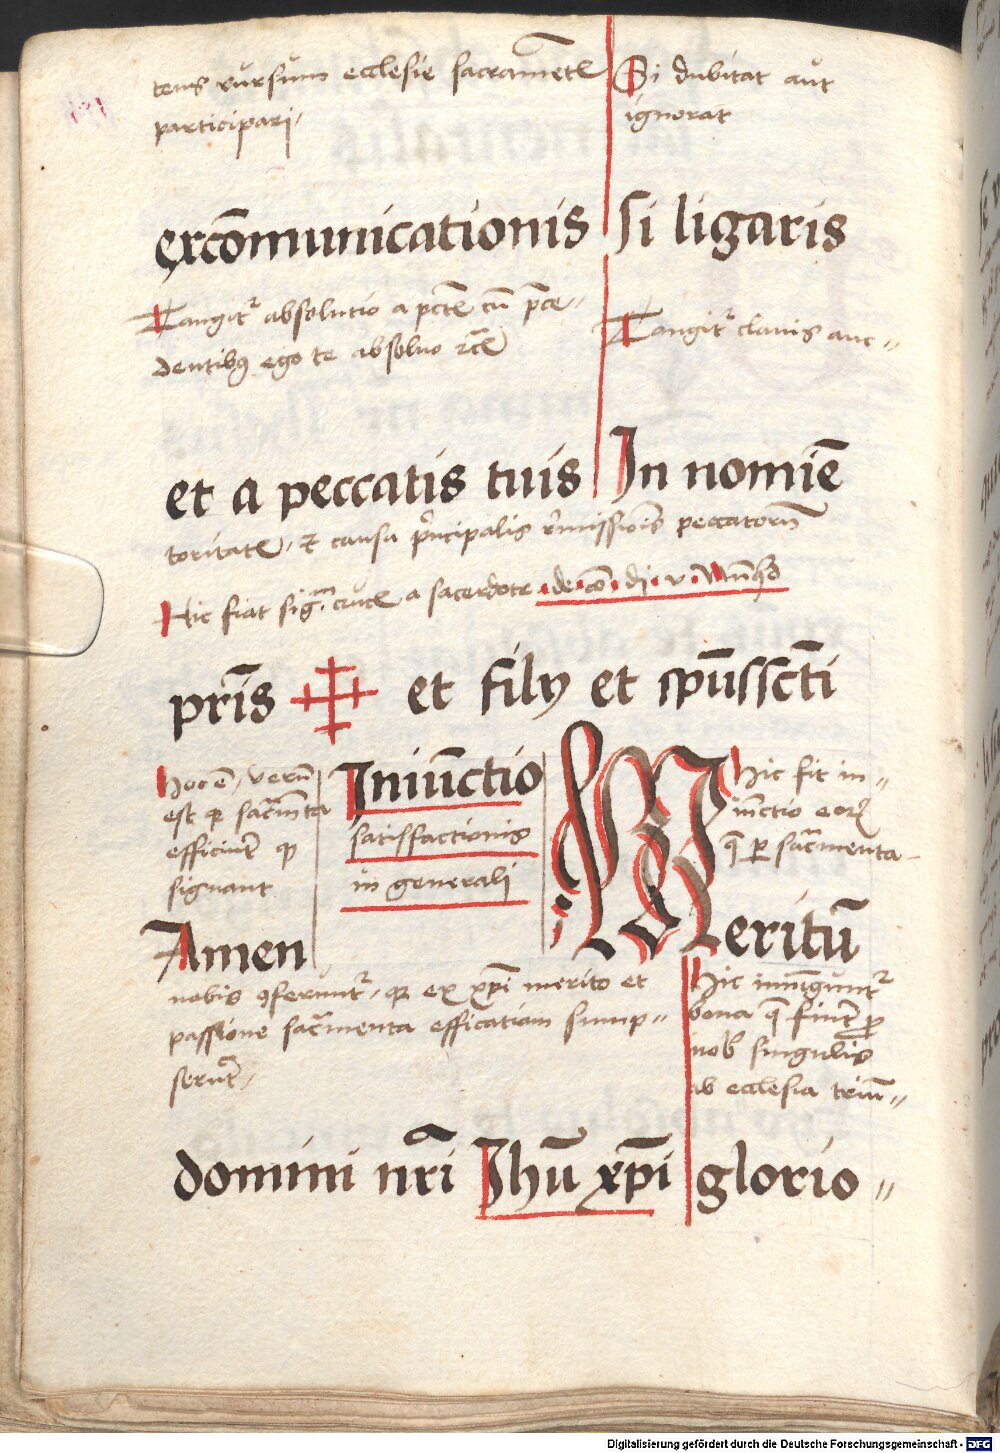 tens rursum ecclesie sacramētꝭ
participari /
Si dubitat aut
ignorat
excōmunicationis si ligaris
Tangitᷣ absolutio a pctꝭ cū p̄ce⸗
dentibꝯ ego te absoluo
Tangitᷣ clauis auc⸗
et a peccatis tuis In nomīe
toritatꝭ, et causa principalis remissionis peccatorum
Hic fiat sigᵐ crucꝭ a sacerdote
pr̄is et filij et spūsscti
Hoc ē, verū
est qꝫ sacr̄mta
efficiūt qꝫ
signant
Iniūctio
satisfactionis
in generali
Hic fit in⸗
iūctio eoꝝ
q̄ ꝑ sacr̄menta
Amen
Meritū
nobis ꝯferūntᷣ, qꝫ ex xp̄i merito et
passione sacr̄menta efficatiam sump⸗
serūt /
Hic iniūguntᷣ
bona q̄ fiūt ꝑ
nob̄ singulis
ab ecclesia triū⸗
domini nr̄i Ihū xp̄i glorio⸗
Digitalisierung gefördert durch die Deutsche Forschungsgemeinschaft - DFG